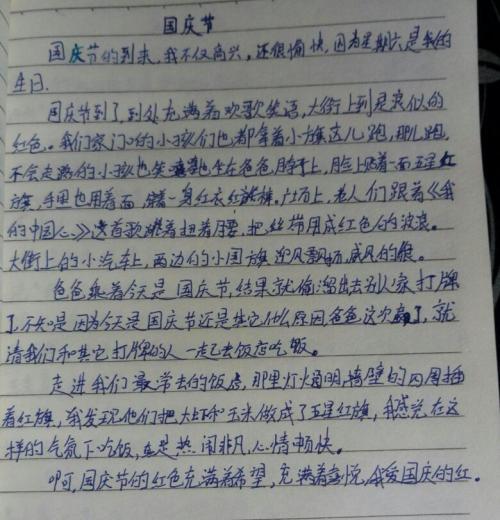 国庆节
国庆节的到来,我不仅高兴,还很愉快,因为星期六是我的
生日.
国庆节到了,到处充满着欢歌笑语,大街上到是浪似的
红色。我们家门口的小孩们也都拿着小旗这儿跑,那儿跑,
不会走路的小孩也笑 地坐在爸爸脖子上,脸上贴着一面五星红
旗,手里也用着面 着一身红衣红 裤。广场上,老人们跟着《我
的中国心》这首歌跳着扭着腰,把丝带甩成红色的波浪。
大街上的小汽车上,两边的小国旗迎风飘扬,威风的很。
爸爸乘着今天是国庆节,结果就偷溜出去别人家打牌
了,不知是因为今天是国庆节还是其它什么原因爸爸这次赢了,就
请我们和其它打牌的人一起去饭店吃饭。
走进我们最常去的饭店,那里灯火通明,墙壁的四周插
着红旗,我发现他们把大虾和玉米做成了五星红旗,我感觉在这
样的气氛下吃饭,真是热闹非凡,心情畅快。
啊,国庆节的红色充满着希望,充满着喜悦,我爱国庆的红。